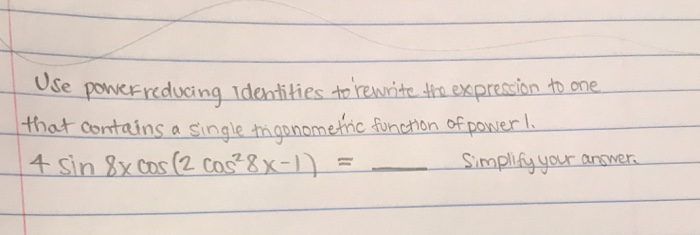 Use power reducing identities to rewrite the expression to one
that contains a single trigonometric function of power 1.
4 sin 8x cos(2 cos²8x-1) = ____ Simplify your answer.